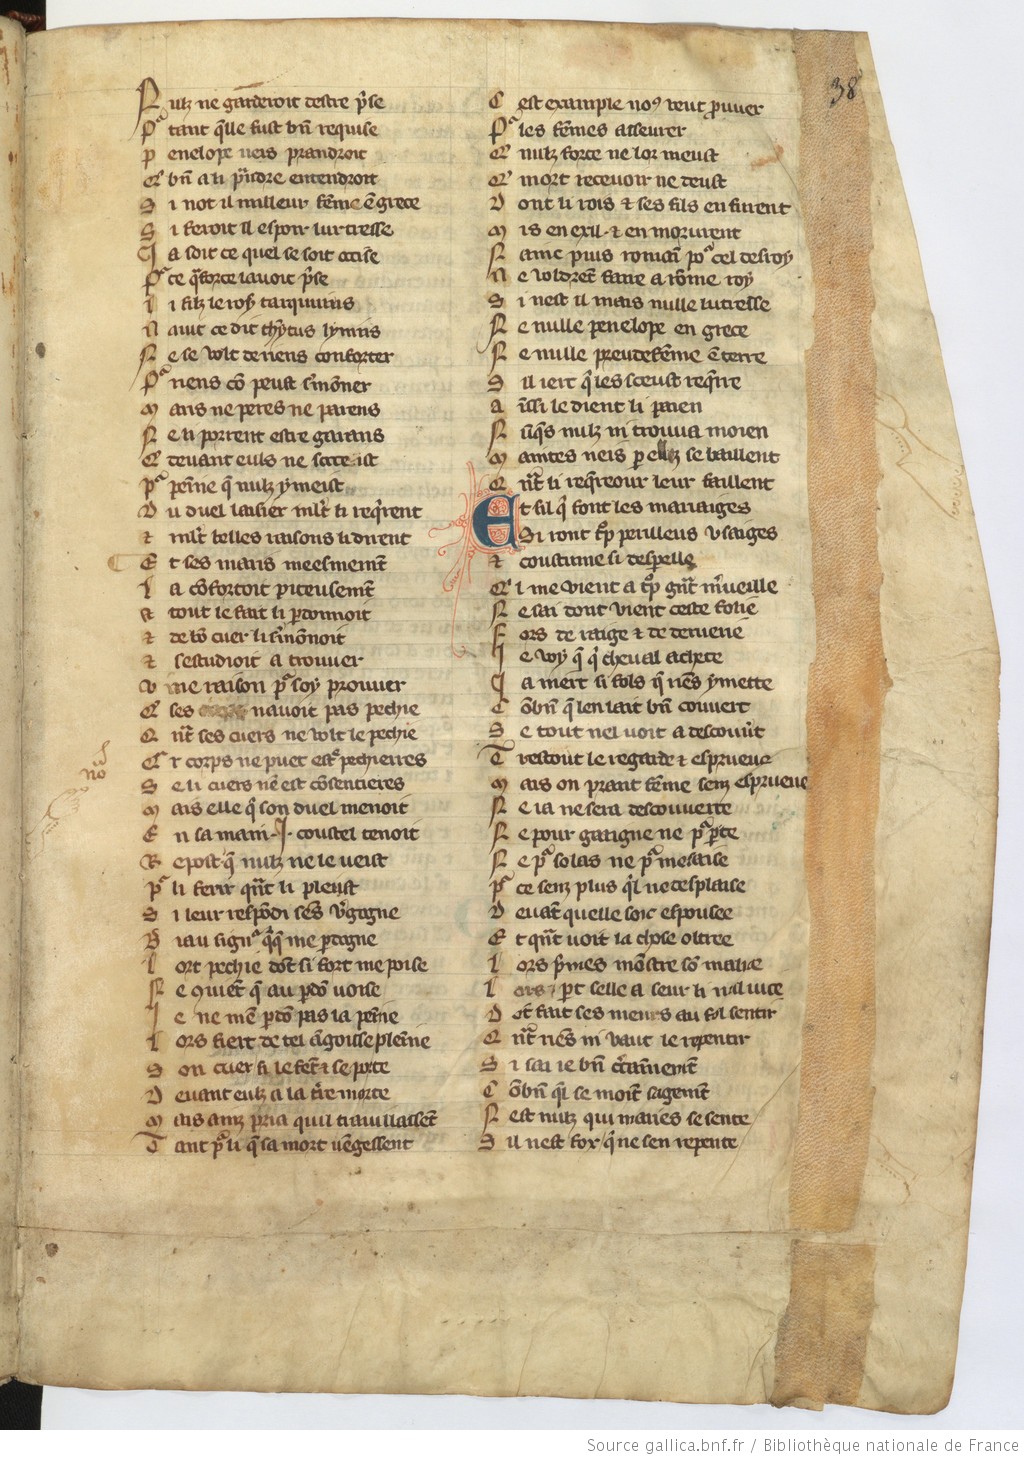 38
N ulz ne garderoit destre p͛se
P᷑ tant q̄lle fust bn̄ requise
P enelope neis prandroit
Q͛ bn̄ a li p͛ndre entendroit
S i not il meilleur fēme ē grece
S i feroit il espoir lucresse
J a soit ce quel se soit occise
P᷑ ce q̄ force lauoit p͛se
L i filz le roy tarquinus
N auit ce dit thytus lyuius
N e se volt de riens conforter
P᷑ riens cō peust s͛mōner
M aris ne peres ne parens
N e li porrent estre garans
Q͛ deuant euls ne soceist
P᷑ peīne q̄ nulz y meist
D u duel laissier ml̄t li req͛rent
⁊ ml̄t belles raisons li dirent
E t ses maris meesmemēt
L a cōfortoit piteusemēt
⁊ tout le fait li p̱donnoit
⁊ de bō cuer li s͛mōnoit
⁊ sestudioit a trouuer
V iue raison p᷑ soy prouuer
Q͛ ses nauoit pas pechie
Q nt̄ ses cuers ne volt le pechie
C͛ corps ne puet est͛ pechierres
S e li cuers nē est cōsentierres
M ais elle q͛ son duel menoit
E n sa main .J. coustel tenoit
R epost q̄ nulz ne le veist
P᷑ li ferir qn̄t li pleust
S i leur respōdi sēs v͛gogne
B iau sign᷑ q͛ q̄ me p̱dogne
L ort pechie dōt si fort me poise
N e quiēt q̄ au p̱dō voise
J e ne mē p̱dō pas la peīne
L ors fiert de tel āgoisse pleīne
S on cuer si le fēt ⁊ se porte
D euant eulz a la t͛re morte
M ais ainz pria quil trauillassēt
T ant p᷑ li q̄ sa mort vēgessent
C est example noꝯ veut prouuer
P᷑ les fēmes asseurer
Q͛ nulz force ne lor meust
Q͛ mort receuoir ne deust
D ont li rois ⁊ ses fils en furent
M is en exil ⁊ en morurent
N ainc puis romaī po᷑ cel desroy
N e voldrēt faire a rōme roy
S i nest il mais nulle lucresse
N e nulle penelope en grece
N e nulle preudefēme ē terre
S il iert q̄ les sceust req͛rre
A īssi le dient li paien
N ūq̄s nulz ni trouua moien
M aintes neis p̱ ellz se baillent
Q nt̄ li req͛reour leur faillent
E t fil q͛ font les mariaiges
Si ront tp̄ perilleus vsaiges
⁊ coustume si despelle
Q͛ i me vient a tp̄ gnt̄ m͛ueille
N e sai dont vient ceste folie
F ors de raige ⁊ de deruerie
J e voy q̄ q͛ cheual achete
J a niert si fols q̄ riēs y mette
C ōbn̄ q̄ len lait bn̄ couuert
S e tout nel voit a descouu͛t
T restout le regarde ⁊ esprueue
M ais on prant fēme senz esprueue
N e ia ne sera descouuerte
N e pour gaaigne ne p᷑ p̱te
N e p᷑ solas ne p᷑ mesaise
P᷑ ce senz plus q̄l ne desplaise
D euāt quelle soit espousee
E t qn̄t voit la chose oltree
L ors p͛mes mōstre sō malice
L ors p̱t selle a seur li nul vice
D ōt fait ses meurs au fol sentir
Q nt̄ riēs ni vaut le repentir
S i sai ie bn̄ c͛tainnemēt
C ōbn̄ q̄l se moīt sagemēt
N est nulz qui mariés se sente
S il nest fox q͛ ne sen repente
Source gallica.bnf.fr / Bibliothèque nationale de France